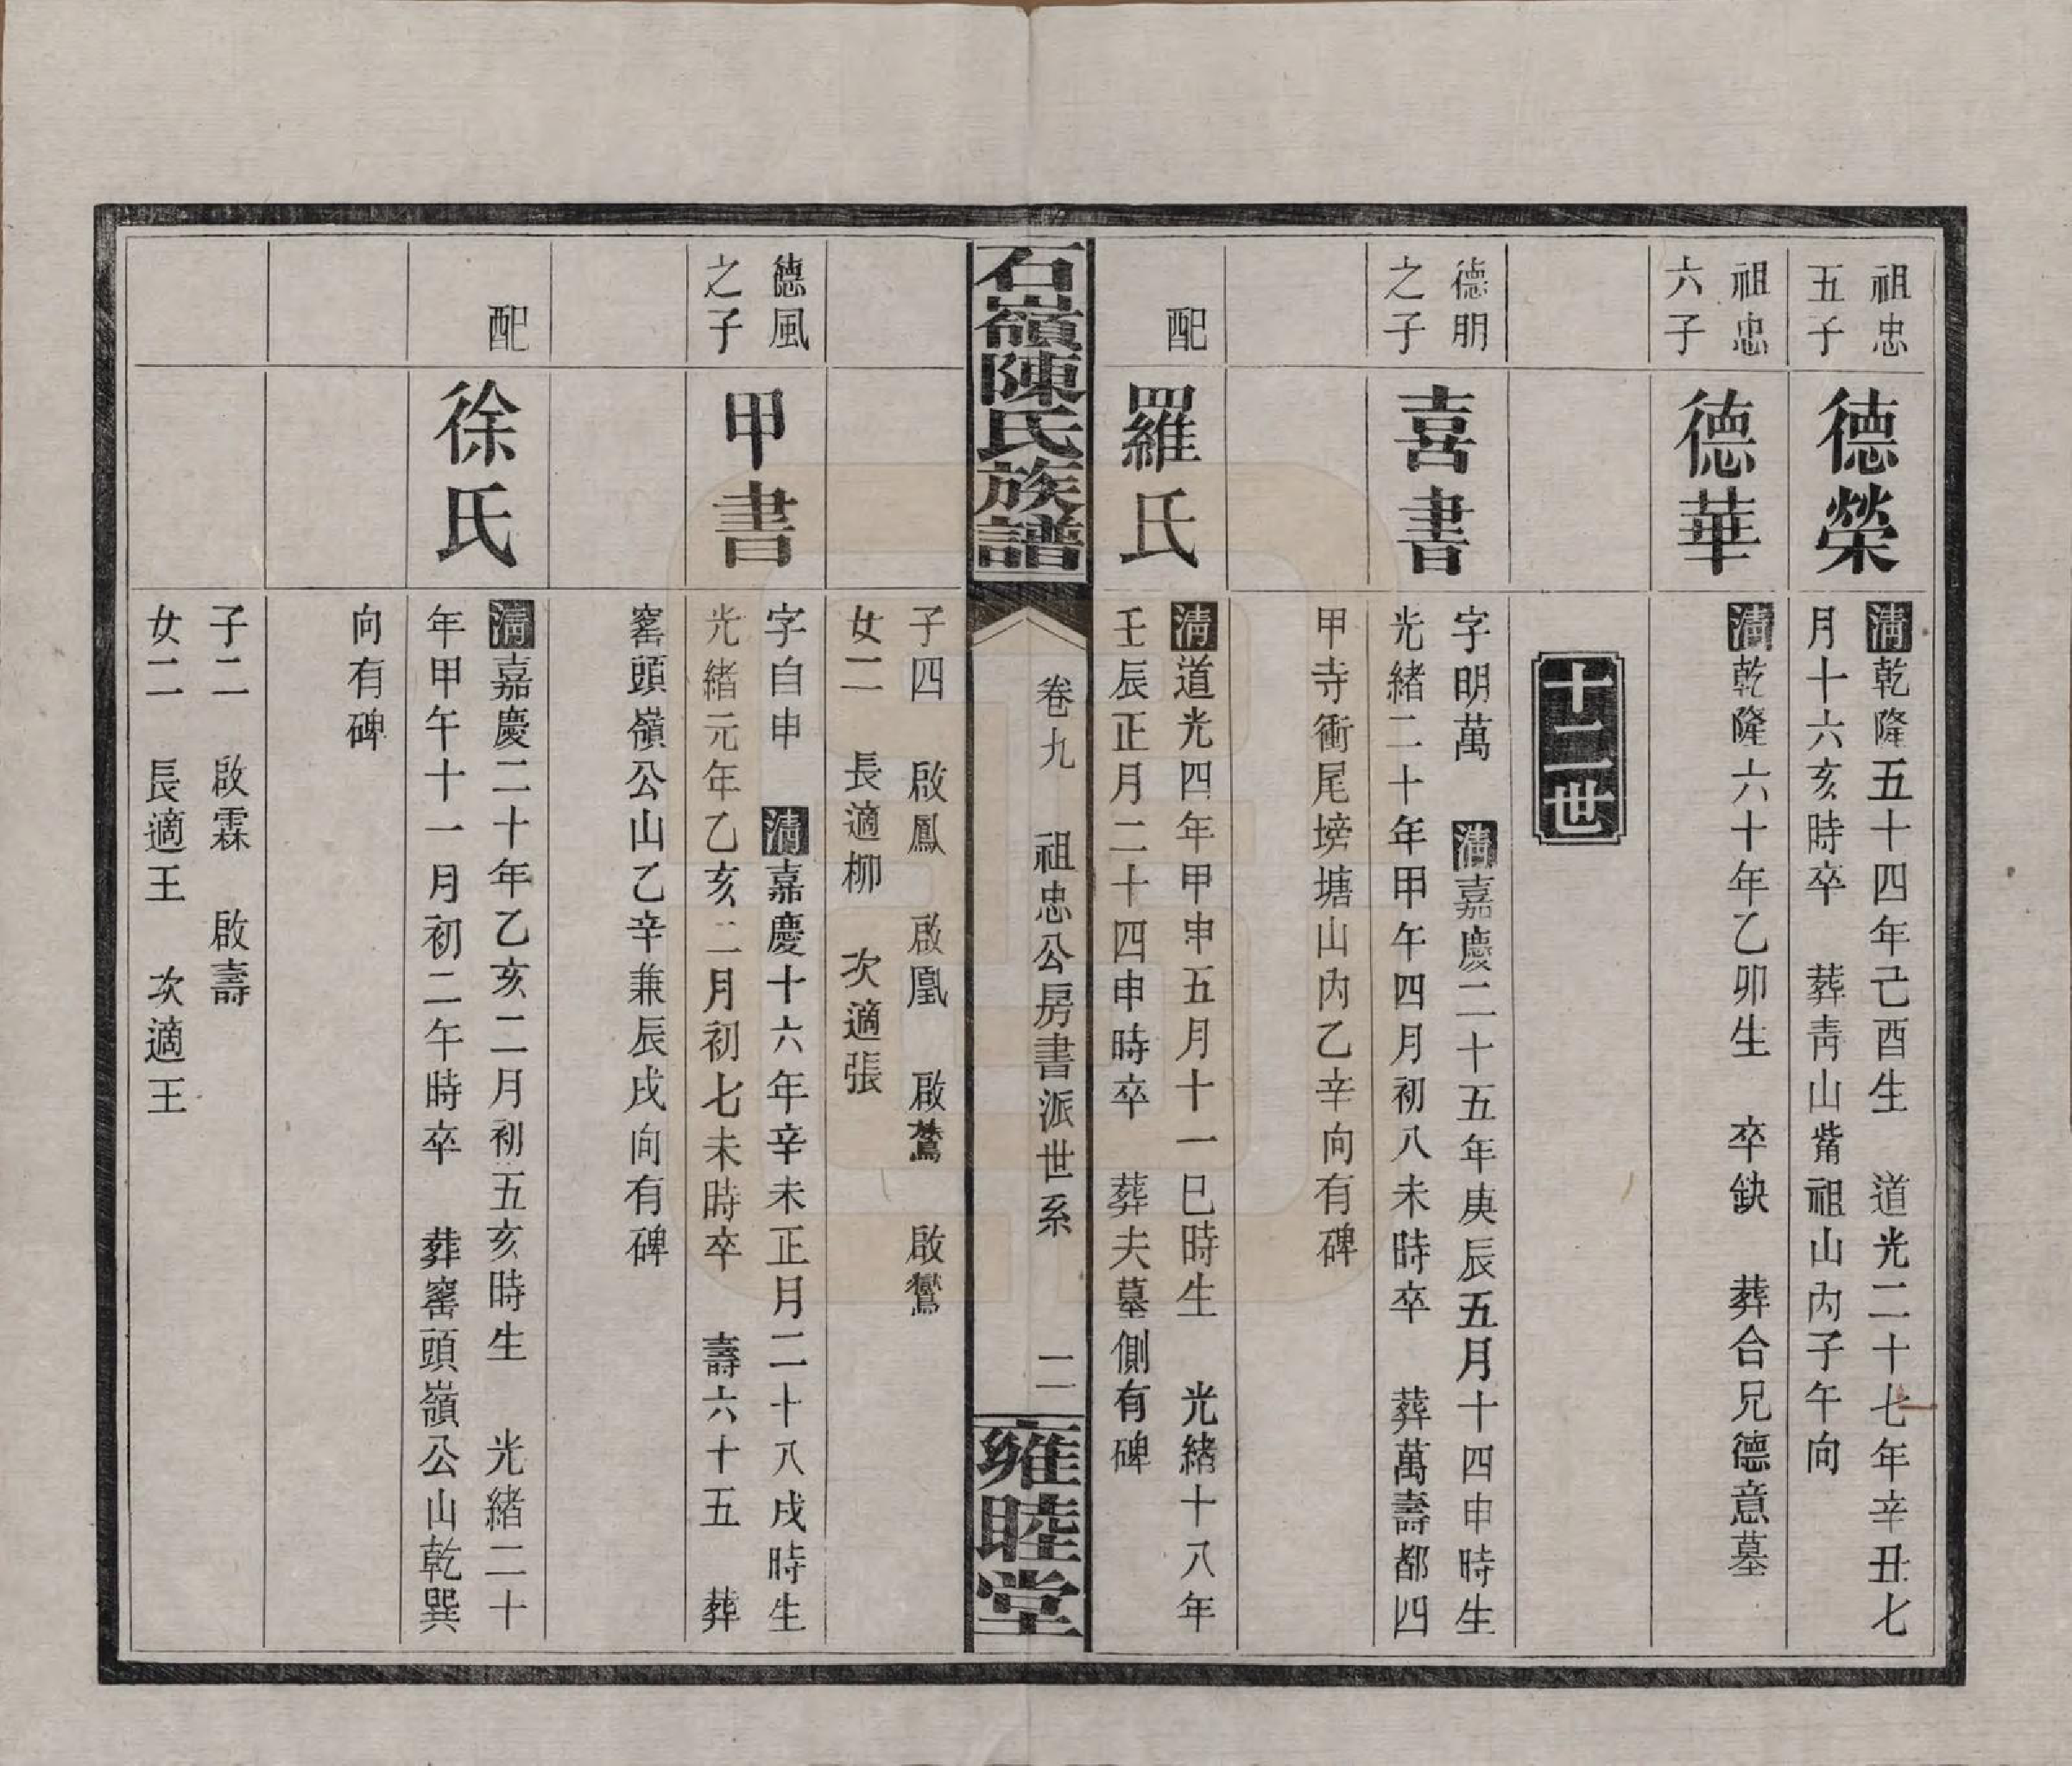 祖忠
五子
德榮
清乾隆五十四年己酉生　道光二十七年辛丑七
月十六亥時卒　葬靑山觜祖山內子午向
祖忠
六子
德華
清乾隆六十年乙卯生　卒缺　葬合兄德意墓
十二世
德明
之子
喜書
字明萬　清嘉慶二十五年庚辰五月十四申時生
光緒二十年甲午四月初八未時卒　葬萬壽都四
甲寺衝尾塝塘山內乙辛向有碑
配
羅氏
清道光四年甲申五月十一巳時生　光緒十八年
壬辰正月二十四申時卒　葬夫墓側有碑
石嶺陳氏族譜
卷九　祖忠公房書派世系　二
雍睦堂
子四　啟鳳　啟凰　啟鶩　啟鸞
女二　長適柳　次適張
德風
之子
甲書
字自申　清嘉慶十六年辛未正月二十八戌時生
光緒元年乙亥二月初七未時卒　壽六十五　葬
窰頭嶺公山乙辛兼辰戌向有碑
配
徐氏
清嘉慶二十年乙亥二月初五亥時生　光緒二十
年甲午十一月初二午時卒　葬窰頭嶺公山乾巽
向有碑
子二　啟霖　啟壽
女二　長適王　次適王